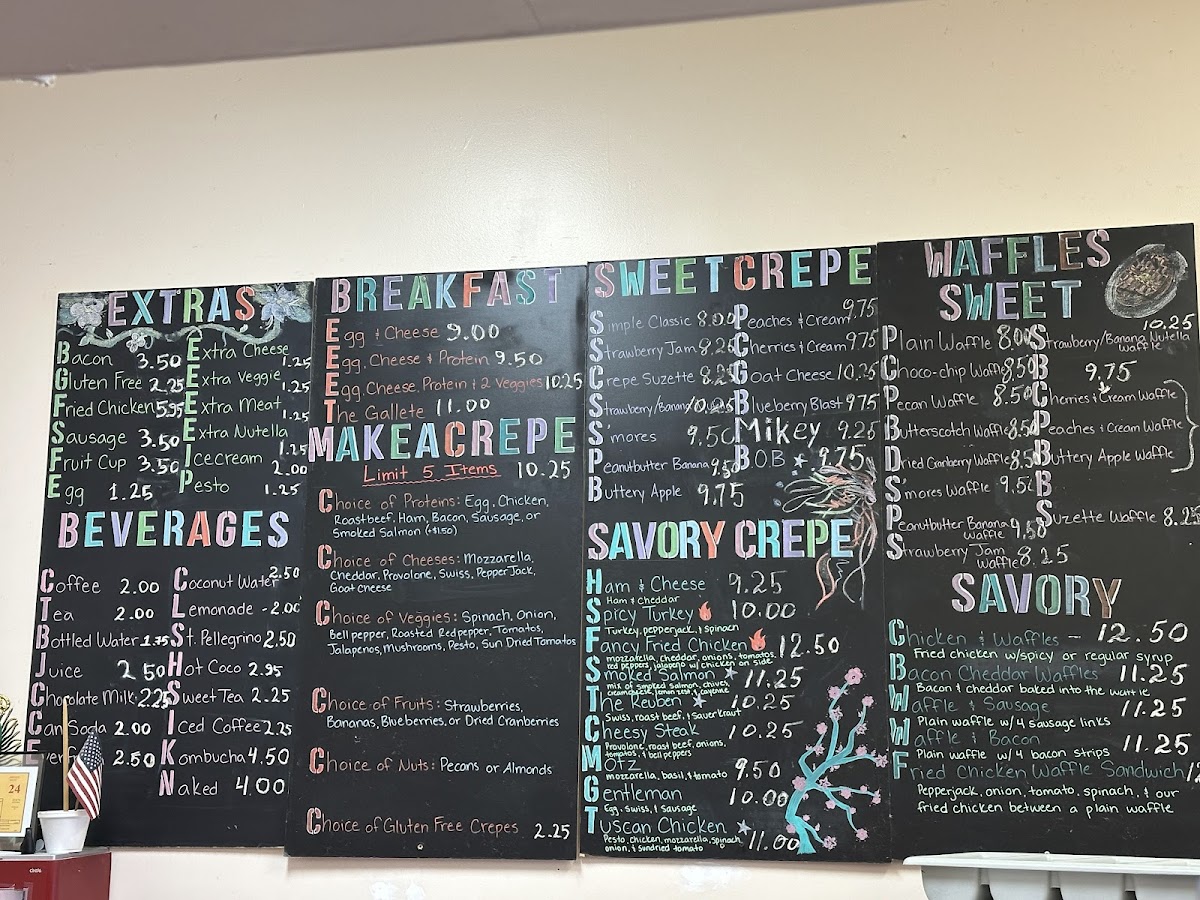 EXTRAS
Bacon 3.50
Gluten Free 2.25
Fried Chicken 5.95
Sausage 3.50
Fruit Cup 3.50
Egg 1.25
Extra Cheese 1.25
Extra Veggie 1.25
Extra Meat 1.25
Extra Nutella 1.25
Icecream 2.00
Pesto 1.25
BEVERAGES
Coffee 2.00
Tea 2.00
Bottled Water 1.75
Juice 2.50
Chocolate Milk 2.25
Can Soda 2.00
2.50
Coconut Water 2.50
Lemonade - 2.00
St. Pellegrino 2.50
Hot Coco 2.95
Sweet Tea 2.25
Iced Coffee 2.25
Kombucha 4.50
Naked 4.00
24
BREAKFAST
Egg & Cheese 9.00
Egg, Cheese & Protein 9.50
Egg, Cheese, Protein & 2 Veggies 10.25
The Gallete 11.00
MAKE A CREPE
Limit 5 Items 10.25
Choice of Proteins: Egg, Chicken,
Roastbeef, Ham, Bacon, Sausage, or
Smoked Salmon (+$1.50)
Choice of Cheeses: Mozzarella,
Cheddar, Provolone, Swiss, Pepper Jack,
Goat cheese
Choice of Veggies: Spinach, Onion,
Bell pepper, Roasted Red pepper, Tomatos,
Jalapenos, Mushrooms, Pesto, Sun Dried Tomatos
Choice of Fruits: Strawberries,
Bananas, Blueberries, or Dried Cranberries
Choice of Nuts: Pecans or Almonds
Choice of Gluten Free Crepes 2.25
SWEET CREPE
Simple Classic 8.00
Strawberry Jam 8.25
Crepe Suzette 8.25
Strawberry/Banana 10.25
S'mores 9.50
Peanutbutter Banana 9.50
Buttery Apple 9.75
Peaches & Cream 9.75
Cherries & Cream 9.75
Goat Cheese 10.25
Blueberry Blast 9.75
Mikey 9.25
B.O.B 9.75
SAVORY CREPE
Ham & Cheese 9.25
Ham & cheddar
Spicy Turkey 10.00
Turkey, pepperjack, & spinach
Fancy Fried Chicken 12.50
mozzarella, cheddar, onions, tomatos,
red peppers, jalapeno w/ chicken on side
Smoked Salmon 11.25
mix of smoked salmon, chives,
creamcheese, lemon zest, & cayenne
The Reuben 10.25
Swiss, roast beef, & sauerkraut
Cheesy Steak 10.25
Provolone, roast beef, onions,
tomatos, & bell peppers
Motz 9.50
mozzarella, basil, & tomato
Gentleman 10.00
Egg, swiss, & sausage
Tuscan Chicken 11.00
Pesto, chicken, mozzarella, spinach,
onion, & sundried tomato
WAFFLES
SWEET
Plain Waffle 8.00
Choco-chip Waffle 8.50
Pecan Waffle 8.50
Butterscotch Waffle 8.50
Dried Cranberry Waffle 8.50
S'mores Waffle 9.50
Peanutbutter Banana
waffle 9.50
Strawberry Jam
waffle 8.25
10.25
Strawberry/Banana Nutella
waffle
9.75
Cherries & Cream Waffle
Peaches & Cream Waffle
Buttery Apple Waffle
Suzette Waffle 8.25
SAVORY
Chicken & Waffles - 12.50
Fried chicken w/spicy or regular syrup
Bacon Cheddar Waffles 11.25
Bacon & cheddar baked into the waffle
Waffle & Sausage 11.25
Plain waffle w/4 sausage links
Waffle & Bacon 11.25
Plain waffle w/ 4 bacon strips
Fried Chicken Waffle Sandwich
Pepperjack, onion, tomato, spinach, & our
fried chicken between a plain waffle